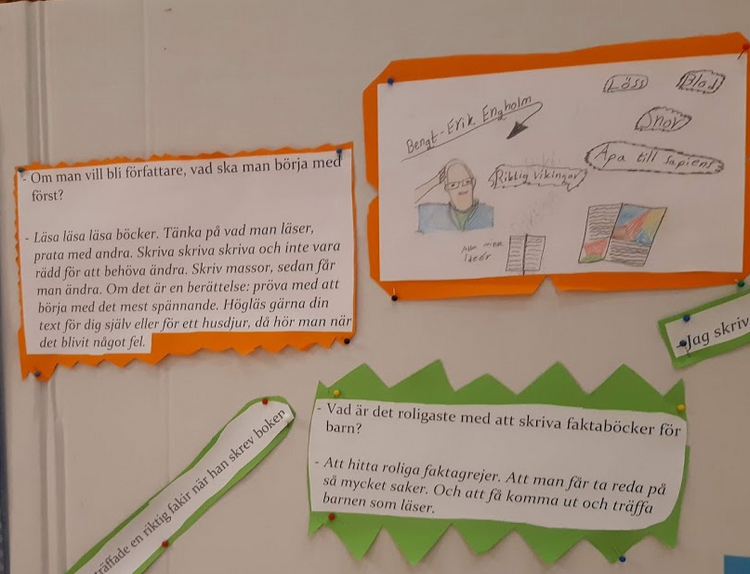 - Om man vill bli författare, vad ska man börja med
först?
- Läsa läsa läsa böcker. Tänka på vad man läser,
prata med andra. Skriva skriva skriva och inte vara
rädd för att behöva ändra. Skriv massor, sedan får
man ändra. Om det är en berättelse: pröva med att
börja med det mest spännande. Högläs gärna din
text för dig själv eller för ett husdjur, då hör man när
det blivit något fel.
Bengt-Erik Engholm
Löss
Blod
Snor
Apa till sapiens
Riktig vikingar
ideér
- Jag skriv
träffade en riktig fakir när han skrev boken
- Vad är det roligaste med att skriva faktaböcker för
barn?
- Att hitta roliga faktagrejer. Att man får ta reda på
så mycket saker. Och att få komma ut och träffa
barnen som läser.